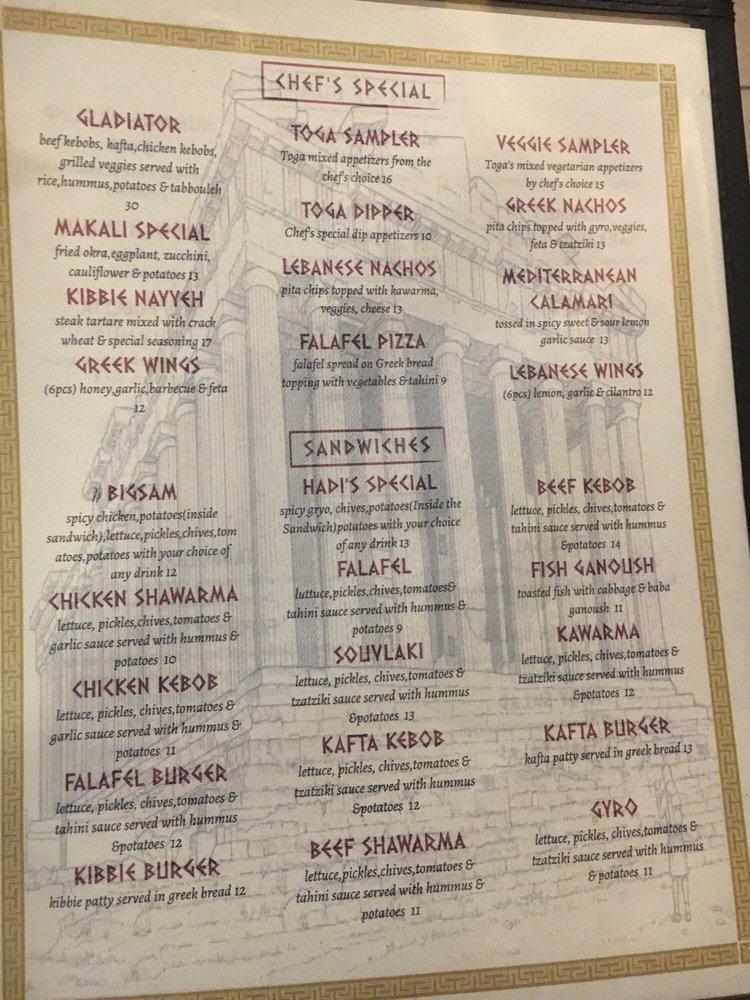 CHEF'S SPECIAL
GLADIATOR
beef kebobs, kafta,chicken kebobs,
grilled veggies served with
rice,hummus,potatoes & tabbouleh
30
MAKALI SPECIAL
fried okra,eggplant, zucchini,
cauliflower & potatoes 13
KIBBIE NAYYEH
steak tartare mixed with crack
wheat & special seasoning 17
GREEK WINGS
(6pcs) honey,garlic,barbecue & feta
12
TOGA SAMPLER
Toga mixed appetizers from the
chef's choice 16
TOGA DIPPER
Chef's special dip appetizers 10
LEBANESE NACHOS
pita chips topped with kawarma,
veggies, cheese 13
FALAFEL PIZZA
falafel spread on Greek bread
topping with vegetables & tahini 9
VEGGIE SAMPLER
Toga's mixed vegetarian appetizers
by chef's choice 15
GREEK NACHOS
pita chips topped with gyro,veggies,
feta & tzatziki 13
MEDITERRANEAN
CALAMARI
tossed in spicy sweet & sour lemon
garlic sauce 13
LEBANESE WINGS
(6pcs) lemon, garlic & cilantro 12
SANDWICHES
BIGSAM
spicy chicken,potatoes(inside
sandwich),lettuce,pickles,chives,tom
atoes,potatoes with your choice of
any drink 12
CHICKEN SHAWARMA
lettuce, pickles,chives,tomatoes &
garlic sauce served with hummus &
potatoes 10
CHICKEN KEBOB
lettuce, pickles, chives,tomatoes &
garlic sauce served with hummus &
potatoes 11
FALAFEL BURGER
lettuce, pickles, chives,tomatoes &
tahini sauce served with hummus
&potatoes 12
KIBBIE BURGER
kibbie patty served in greek bread 12
HADI'S SPECIAL
spicy gryo, chives,potatoes(Inside the
Sandwich)potatoes with your choice
of any drink 13
FALAFEL
luttuce,pickles,chives,tomatoes&
tahini sauce served with hummus &
potatoes 9
SOUVLAKI
lettuce, pickles, chives,tomatoes &
tzatziki sauce served with hummus
&potatoes 13
KAFTA KEBOB
lettuce, pickles, chives,tomatoes &
tzatziki sauce served with hummus
&potatoes 12
BEEF SHAWARMA
lettuce,pickles,chives,tomatoes &
tahini sauce served with hummus &
potatoes 11
BEEF KEBOB
lettuce, pickles, chives,tomatoes &
tahini sauce served with hummus
&potatoes 14
FISH GANOUSH
toasted fish with cabbage & baba
ganoush 11
KAWARMA
lettuce, pickles, chives,tomatoes &
tzatziki sauce served with hummus
&potatoes 12
KAFTA BURGER
kafta patty served in greek bread 13
GYRO
lettuce, pickles, chives,tomatoes &
tzatziki sauce served with hummus
& potatoes 11